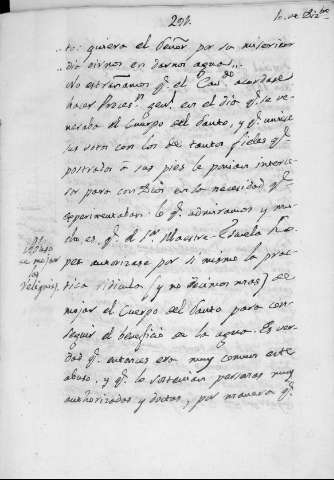 294.
10. de Dizbre
..to: quiera el Señor por su misericor
dia oirnos en darnos agua.
No estrañamos q.e el Cavdo acordase
hacer Proces.n genl. en el dia q.e se ve-
nerado el Cuerpo del Santo, y q.e uniese
sus votos con los de tantos fieles q.e
postrados a sus pies le ponian interce-
sor para con Dios en la necesidad q.e
experimentaban: lo q.e admiramos y mu-
cho, es, q.e el S.or Maestre Escuela
pez autorizase por si mismo la prac-
tica ridicula (y no decimos mas) de
mojar el Cuerpo del Santo para con-
seguir el beneficio de la agua. Es ver-
dad q.e entonces era muy comun este
abuso, y q.e lo sostenian personas muy
authorizadas y doctas, por manera q.e
Abuso
de mojar
las
reliquias